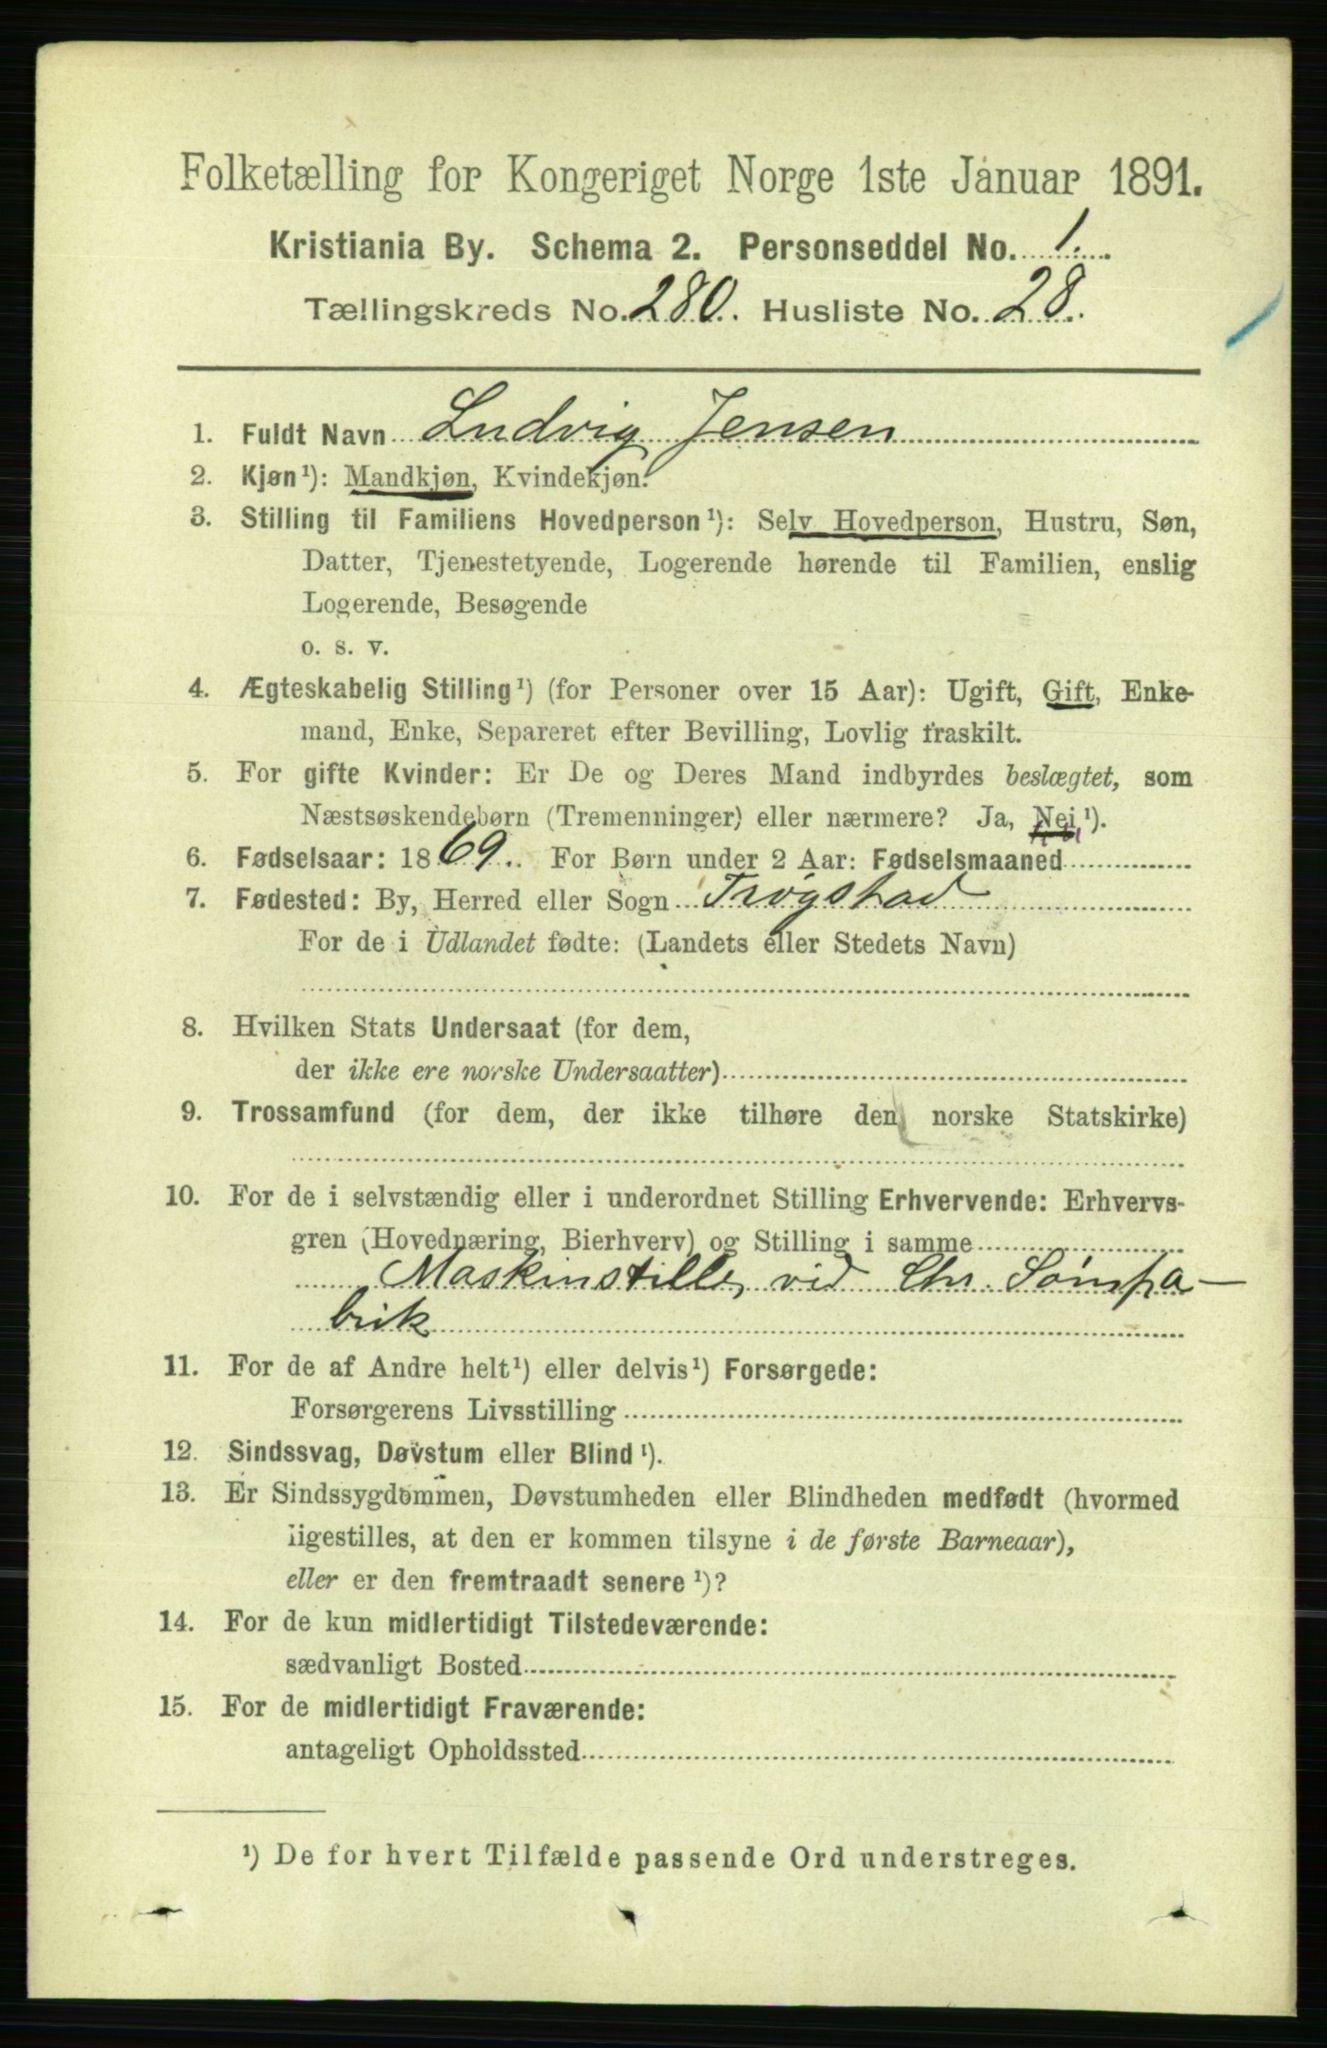 Folketælling for Kongeriget Norge 1ste Januar 1891.
Kristiania By. Schema 2. Personseddel No. 1.
Tællingskreds No. 280. Husliste No. 28.
1. Fuldt Navn Ludvig Jensen
2. Kjøn¹): Mandkjøn, Kvindekjøn.
3. Stilling til Familiens Hovedperson¹): Selv Hovedperson, Hustru, Søn,
Datter, Tjenestetyende, Logerende hørende til Familien, enslig
Logerende, Besøgende
o. s. v.
4. Ægteskabelig Stilling¹) (for Personer over 15 Aar): Ugift, Gift, Enke-
mand, Enke, Separeret efter Bevilling, Lovlig fraskilt.
5. For gifte Kvinder: Er De og Deres Mand indbyrdes beslægtet, som
Næstsøskendebørn (Tremenninger) eller nærmere? Ja, Nei¹).
6. Fødselsaar: 1869. For Børn under 2 Aar: Fødselsmaaned
7. Fødested: By, Herred eller Sogn Trøgstad
For de i Udlandet fødte: (Landets eller Stedets Navn)
8. Hvilken Stats Undersaat (for dem,
der ikke ere norske Undersaatter)
9. Trossamfund (for dem, der ikke tilhøre den norske Statskirke)
10. For de i selvstændig eller i underordnet Stilling Erhvervende: Erhvervs-
gren (Hovednæring, Bierhverv) og Stilling i samme
Maskinstille, vid Chr. Sömfa-
brik
11. For de af Andre helt¹) eller delvis¹) Forsørgede:
Forsørgerens Livsstilling
12. Sindssvag, Døvstum eller Blind¹).
13. Er Sindssygdommen, Døvstumheden eller Blindheden medfødt (hvormed
ligestilles, at den er kommen tilsyne i de første Barneaar),
eller er den fremtraadt senere¹)?
14. For de kun midlertidigt Tilstedeværende:
sædvanligt Bosted
15. For de midlertidigt Fraværende:
antageligt Opholdssted
¹) De for hvert Tilfælde passende Ord understreges.